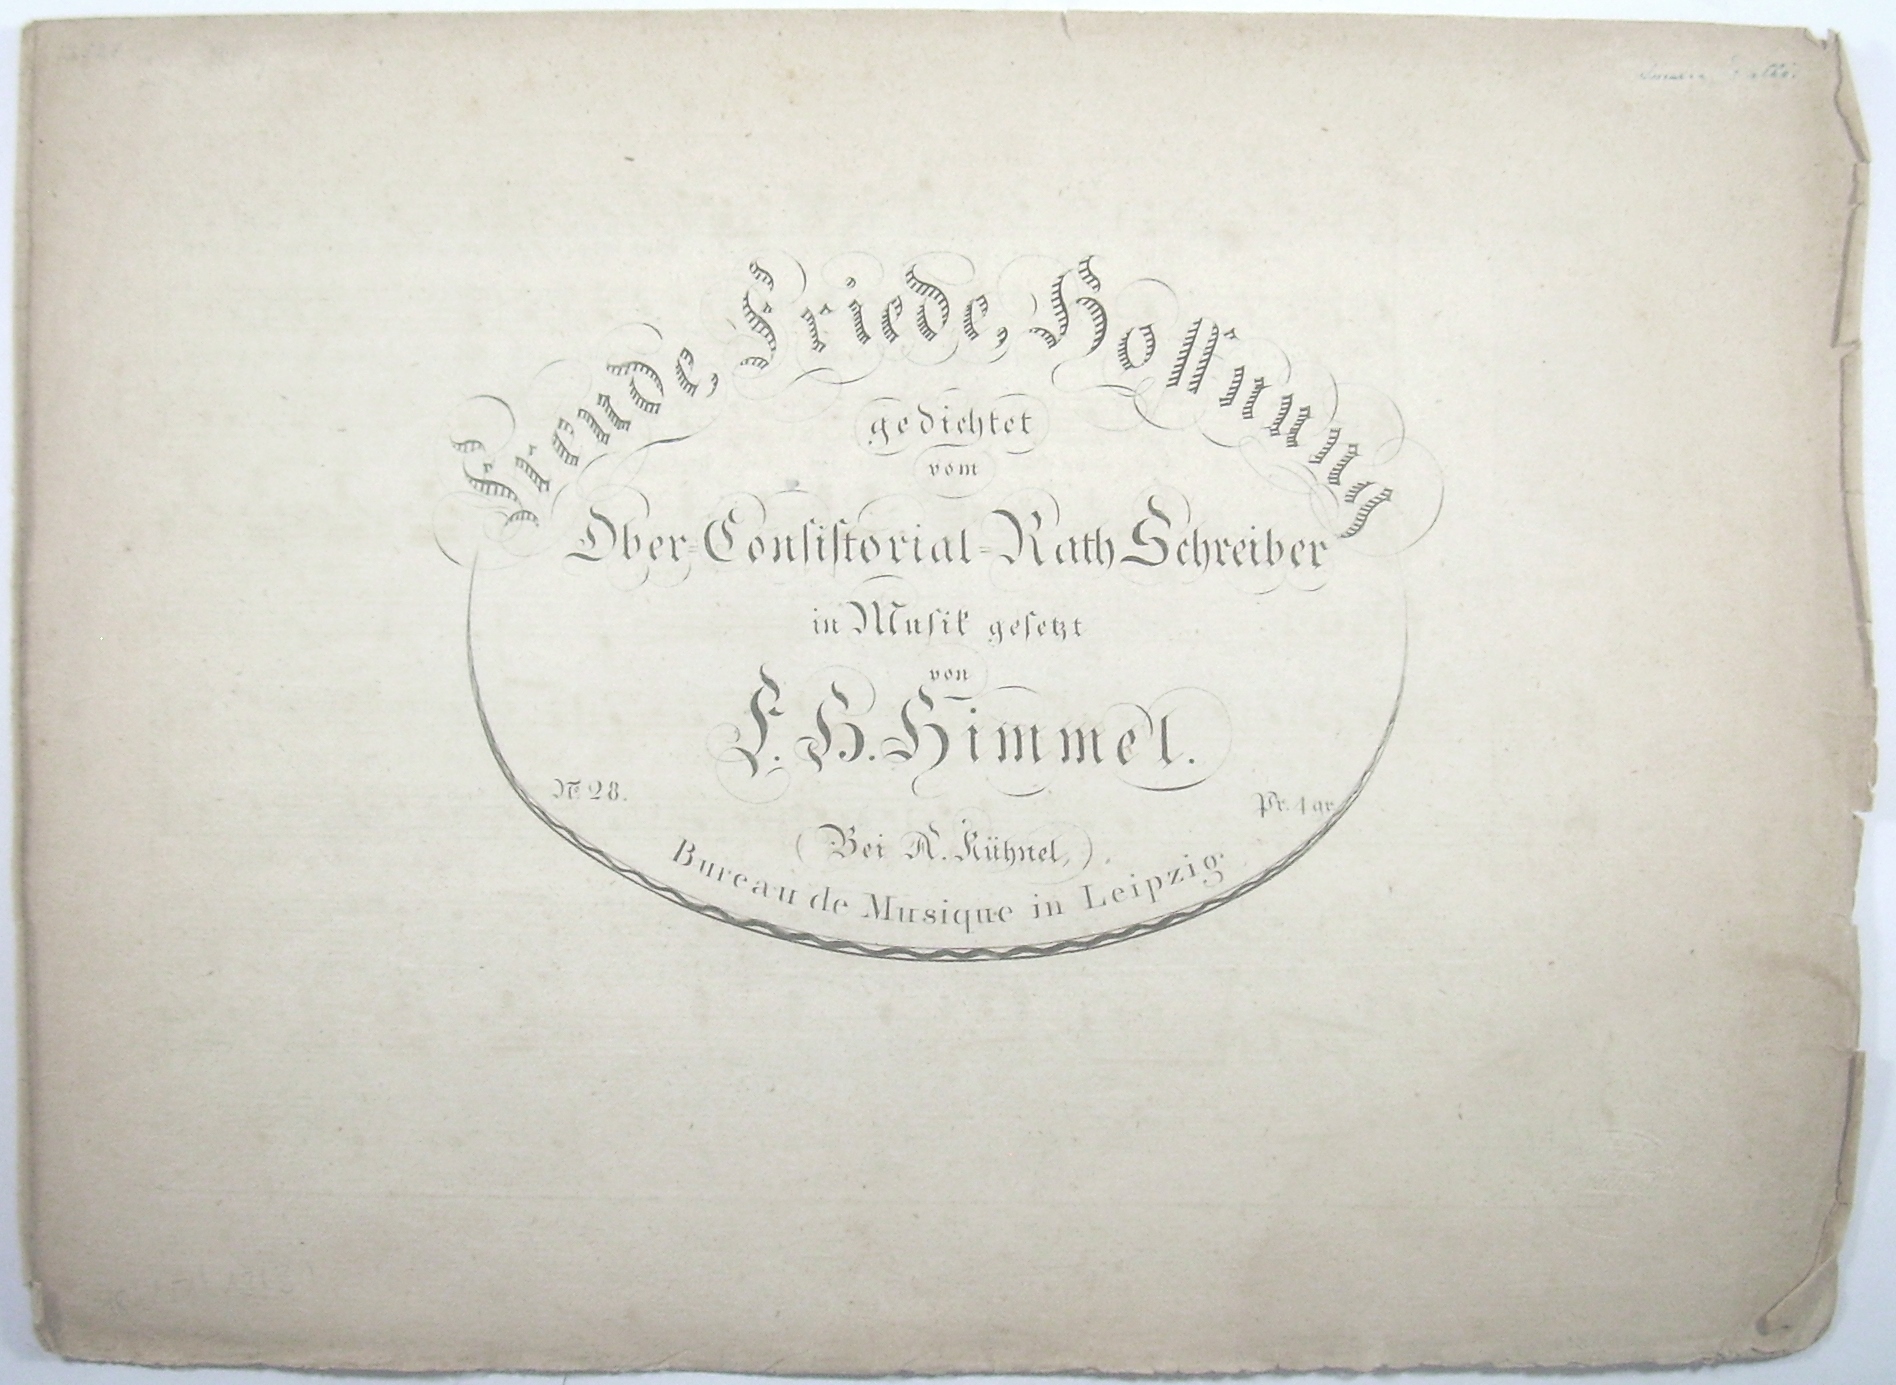 Freude, Friede, Hoffnung
gedichtet
vom
Ober=Consistorial=Rath Schreiber
in Musik gesetzt
von
F. H. Himmel.
No. 28.
Pr. 4 gr.
(Bei A. Kühnel,)
Bureau de Musique in Leipzig